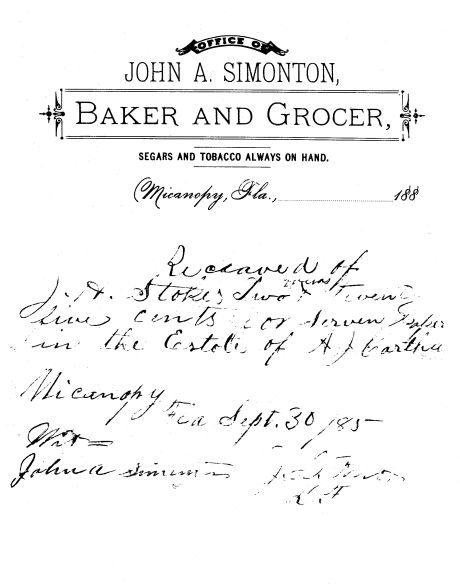 OFFICE OF
JOHN A. SIMONTON,
BAKER AND GROCER,
SEGARS AND TOBACCO ALWAYS ON HAND.
Micanopy, Fla., 188
Recieved of
J. H. Stokes Two & Twenty
five cents for serven
in the Estate of A J
Micanopy
Fla Sept. 30 /85
Wit
John A Simonton